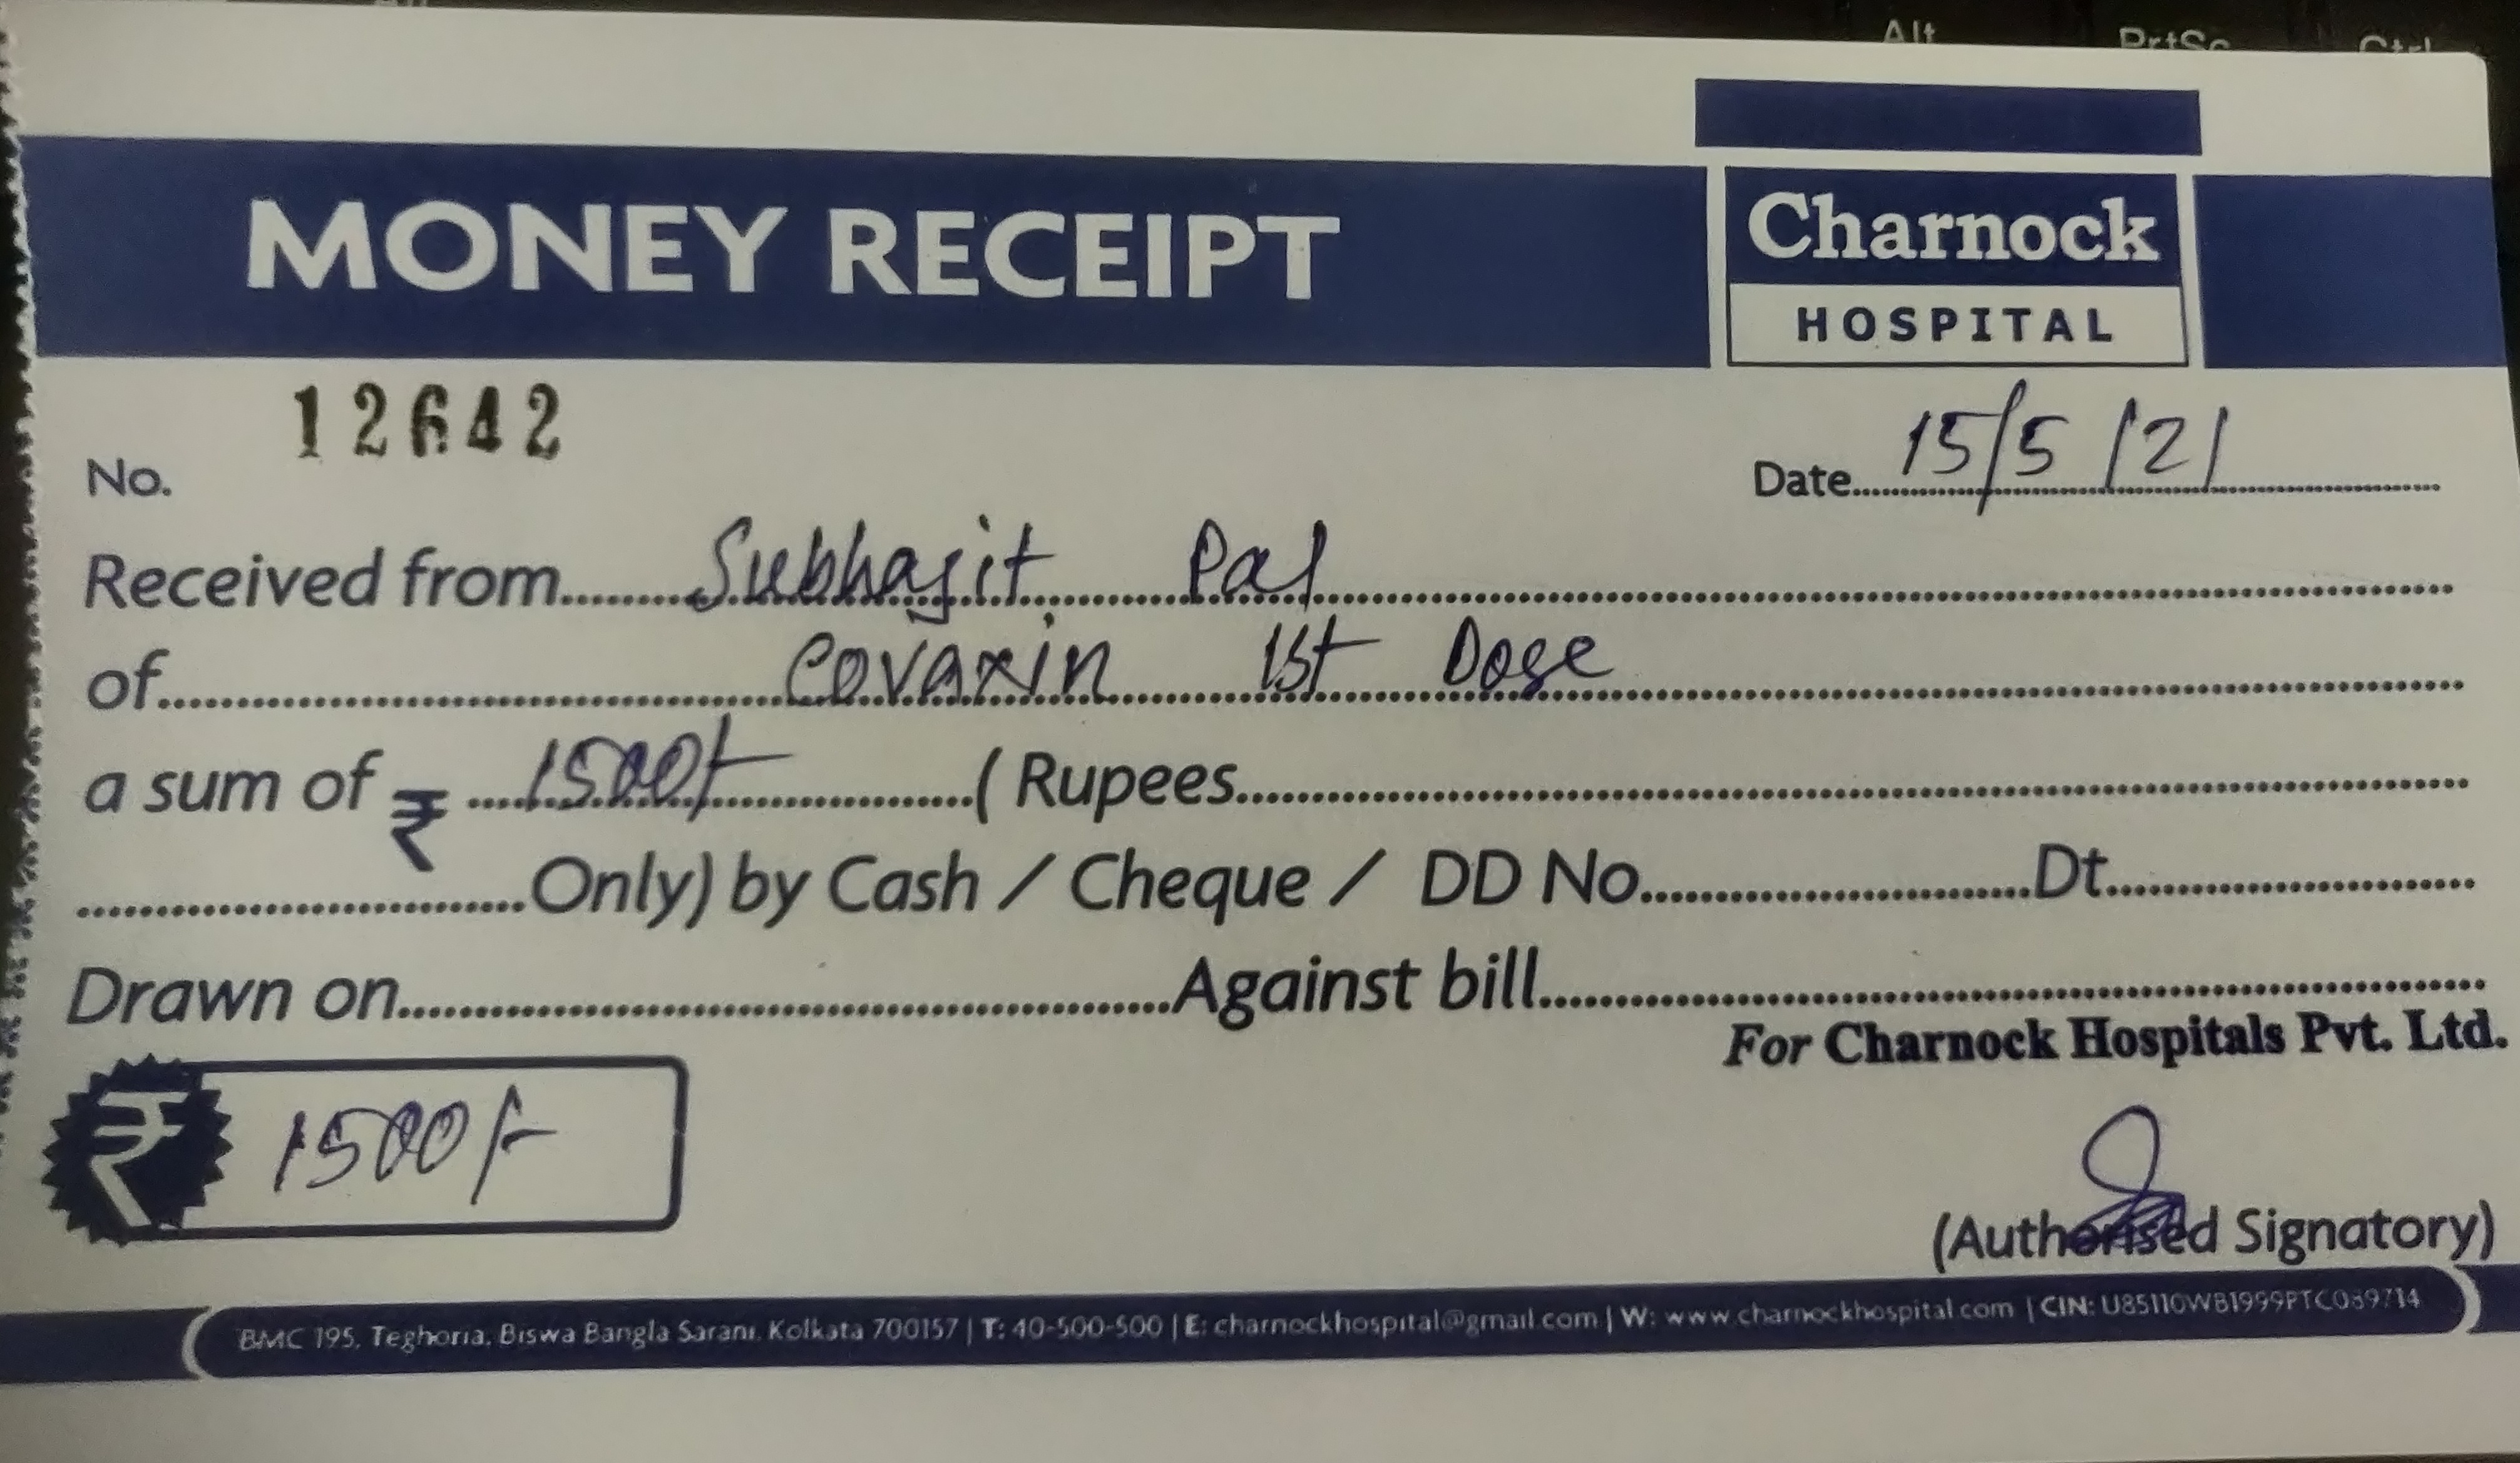 Alt PrtSc Ctrl
MONEY RECEIPT
Charnock
HOSPITAL
No. 12642
Date 15/5/21
Received from Subhajit Pal
of Covaxin 1st Dose
a sum of ₹ 1500/- ( Rupees
Only) by Cash / Cheque / DD No. Dt.
Drawn on Against bill
For Charnock Hospitals Pvt. Ltd.
₹ 1500/-
(Authorised Signatory)
BMC 195, Teghoria, Biswa Bangla Sarani, Kolkata 700157 | T: 40-500-500 | E: charnockhospital@gmail.com | W: www.charnockhospital.com | CIN: U85110WB1999PTC089714